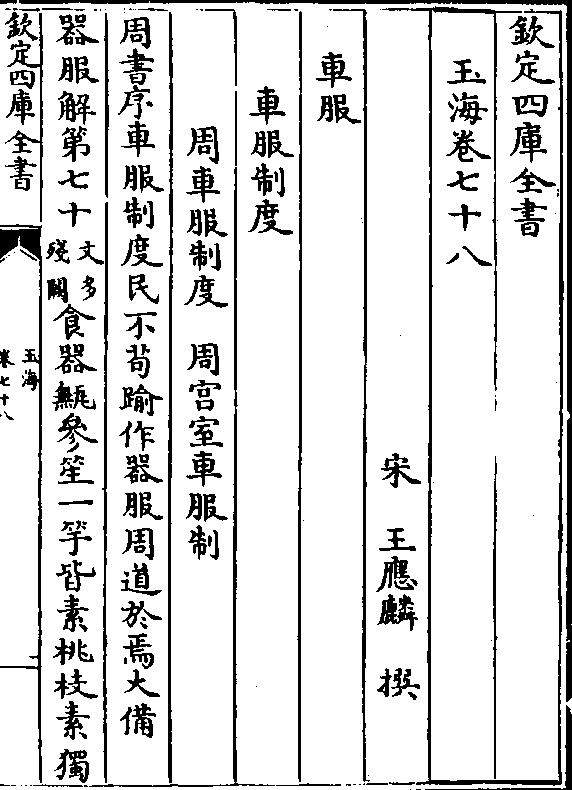 欽定四庫全書
玉海卷七十八
宋 王應麟 撰
車服
車服制度
周車服制度 周宫室車服制
周書序車服制度民不苟踰作器服周道於焉大備
器服解第七十文多殘闕食器甒參笙一竽皆素桃枝素獨
欽定四庫全書
玉海
卷七十八